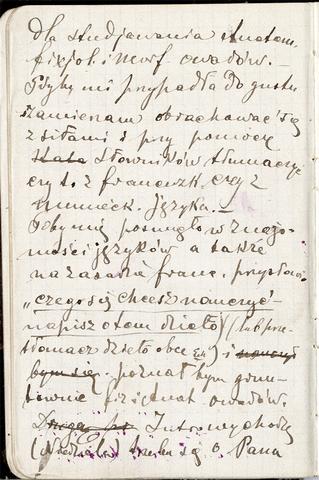 dla studjowania anatom.
fizjol. i morf. owadów. —
Gdyby mi przypadła do gustu
zamierzam obrachować się
z siłami i przy pomocy
słowników tłumaczyć
czy to z francuzk. czy z
niemieck. języka. —
Toby mię posunęło w znajo-
mości języków a także
na zasadzie franc. przysłow.
„czego się chcesz nauczyć —
napisz o tem dzieło" (lub prze-
tłomacz dzieło obce) i
bym się poznał bym grun-
townie fizjonat owadów.
Intromychodzę
(Niedziela) się o Pana